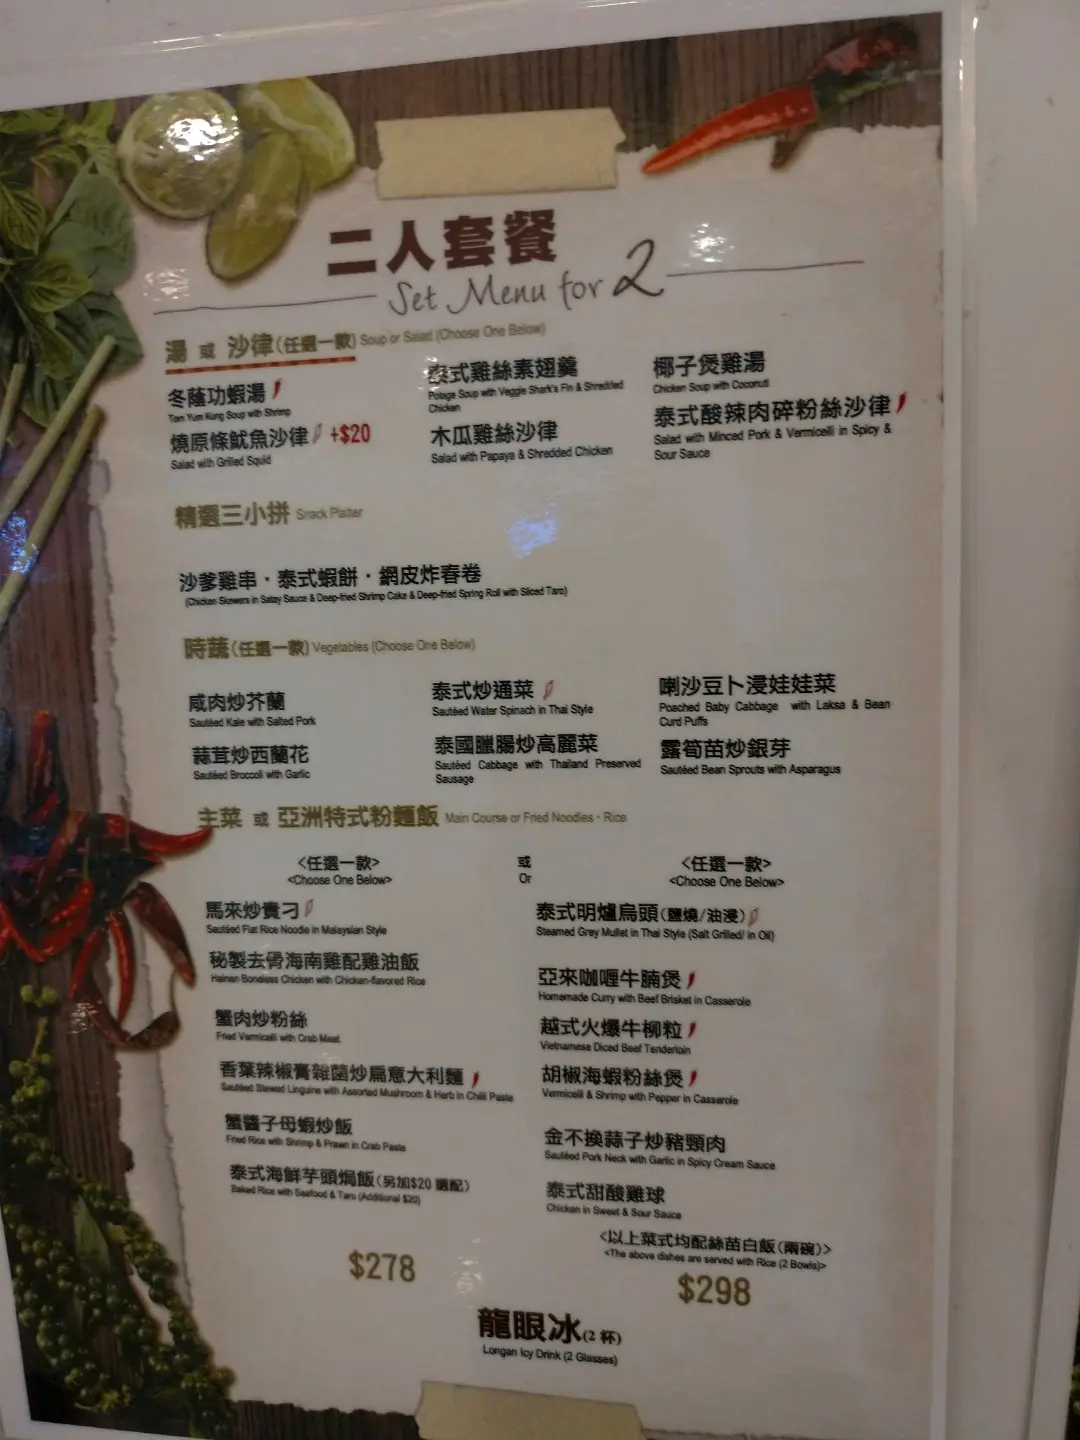 二人套餐
Set Menu for 2
湯 或 沙律(任選一款) Soup or Salad (Choose One Below)
冬蔭功蝦湯
Tom Yum Kung Soup with Shrimp
泰式雞絲素翅羹
Potage Soup with Veggie Shark's Fin & Shredded
Chicken
椰子煲雞湯
Chicken Soup with Coconut
燒原條魷魚沙律 +$20
Salad with Grilled Squid
木瓜雞絲沙律
Salad with Papaya & Shredded Chicken
泰式酸辣肉碎粉絲沙律
Salad with Minced Pork & Vermicelli in Spicy &
Sour Sauce
精選三小拼 Snack Platter
沙爹雞串・泰式蝦餅・網皮炸春卷
(Chicken Skewers in Satay Sauce & Deep-fried Shrimp Cake & Deep-fried Spring Roll with Sliced Taro)
時蔬(任選一款) Vegetables (Choose One Below)
咸肉炒芥蘭
Sautéed Kale with Salted Pork
泰式炒通菜
Sautéed Water Spinach in Thai Style
喇沙豆卜浸娃娃菜
Poached Baby Cabbage with Laksa & Bean
Curd Puffs
蒜茸炒西蘭花
Sautéed Broccoli with Garlic
泰國臘腸炒高麗菜
Sautéed Cabbage with Thailand Preserved
Sausage
露筍苗炒銀芽
Sautéed Bean Sprouts with Asparagus
主菜 或 亞洲特式粉麵飯 Main Course or Fried Noodles・Rice
<任選一款>
<Choose One Below>
或
Or
<任選一款>
<Choose One Below>
馬來炒貴刁
Sautéed Flat Rice Noodle in Malaysian Style
秘製去骨海南雞配雞油飯
Hainan Boneless Chicken with Chicken-flavored Rice
蟹肉炒粉絲
Fried Vermicelli with Crab Meat
香葉辣椒膏雜菌炒扁意大利麵
Sautéed Stewed Linguine with Assorted Mushroom & Herb in Chili Paste
蟹醬子母蝦炒飯
Fried Rice with Shrimp & Prawn in Crab Paste
泰式海鮮芋頭焗飯(另加$20 選配)
Baked Rice with Seafood & Taro (Additional $20)
$278
泰式明爐烏頭(鹽燒/油浸)
Steamed Grey Mullet in Thai Style (Salt Grilled/ in Oil)
亞來咖喱牛腩煲
Homemade Curry with Beef Brisket in Casserole
越式火爆牛柳粒
Vietnamese Diced Beef Tenderloin
胡椒海蝦粉絲煲
Vermicelli & Shrimp with Pepper in Casserole
金不換蒜子炒豬頸肉
Sautéed Pork Neck with Garlic in Spicy Cream Sauce
泰式甜酸雞球
Chicken in Sweet & Sour Sauce
<以上菜式均配絲苗白飯(兩碗)>
<The above dishes are served with Rice (2 Bowls)>
$298
龍眼冰(2 杯)
Longan Icy Drink (2 Glasses)